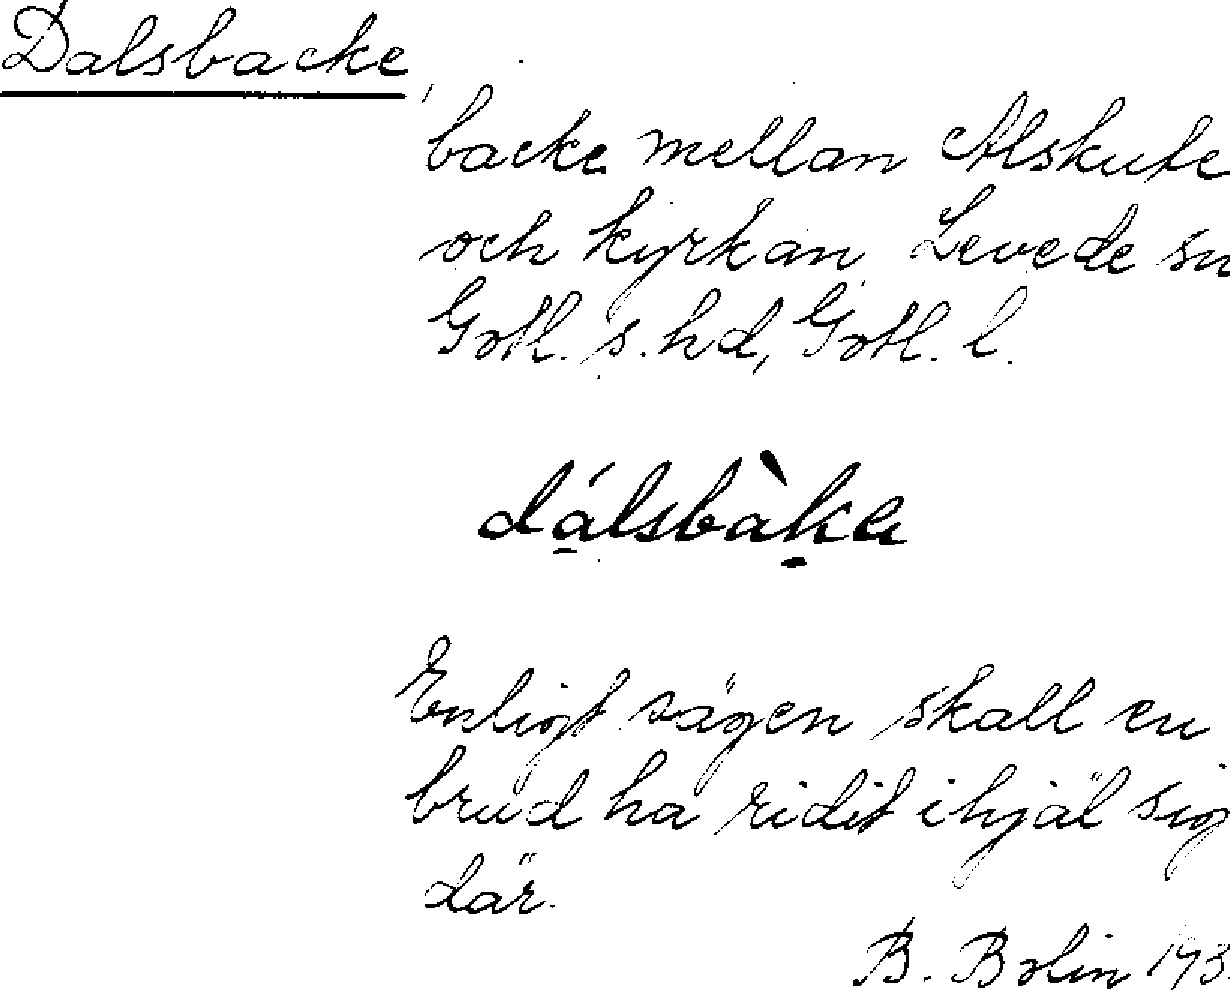 Dalsbacke
backe mellan Alskute
och kyrkan, Levede sn
Gotl. s. hd, Gotl. l.
dálsbàka
Enligt sägen skall en
brud ha ridit ihjäl sig
där.
B. Bolin 193